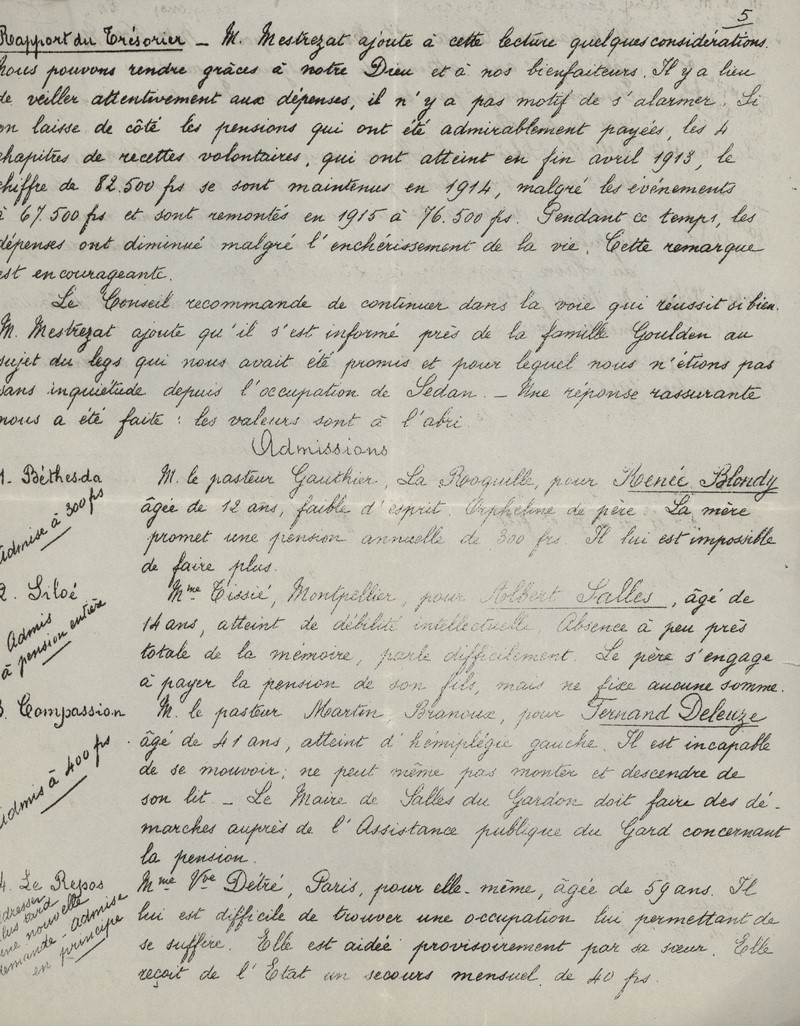 5
Rapport du Trésorier _ M. Mestrezat ajoute à cette lecture quelques considérations.
nous pouvons rendre grâces à notre Dieu et à nos bienfaiteurs. Il y a lieu
de veiller attentivement aux dépenses, il n'y a pas motif de s'alarmer. Si
on laisse de côté les pensions qui ont été admirablement payées, les 4
chapitres de recettes volontaires, qui ont atteint en fin avril 1913, le
chiffre de 82.500 frs se sont maintenus en 1914, malgré les événements
à 67.500 frs et sont remontés en 1915 à 76.500 frs. Pendant ce temps, les
dépenses ont diminué malgré l'enchérissement de la vie. Cette remarque
est encourageante.
Le Conseil recommande de continuer dans la voie qui réussit si bien.
M. Mestrezat ajoute qu'il s'est informé près de la famille Goulden au
sujet du legs qui nous avait été promis et pour lequel nous n'étions pas
sans inquiétude depuis l'occupation de Sedan. _ Une réponse rassurante
nous a été faite : les valeurs sont à l'abri.
Admissions
1. Béthesda
Admise à 300 frs
M. le pasteur Gauthier, La Roquille, pour Renée Blondy
âgée de 12 ans, faible d'esprit. Orpheline de père. La mère
promet une pension annuelle de 300 frs. Il lui est impossible
de faire plus.
2. Siloé
Admis
à pension entière
Mme Tissié, Montpellier, pour Albert Salles, âgé de
14 ans, atteint de débilité intellectuelle. Absence à peu près
totale de la mémoire, parle difficilement. Le père s'engage
à payer la pension de son fils, mais ne fixe aucune somme.
3. Compassion
Admis à 400 frs
M. le pasteur Marton, Branoux, pour Fernand Deleuze
âgé de 41 ans, atteint d'hémiplégie gauche. Il est incapable
de se mouvoir; ne peut même pas monter et descendre de
son lit _ Le Maire de Salles du Gardon doit faire des dé-
marches auprès de l'Assistance publique du Gard concernant
la pension.
4. Le Repos
adresser
plus tard
une nouvelle
demande - admise
en principe
Mme Vve Détré, Paris, pour elle-même, âgée de 59 ans. Il
lui est difficile de trouver une occupation lui permettant de
se suffire. Elle est aidée provisoirement par sa sœur. Elle
reçoit de l'Etat un secours mensuel de 40 frs.